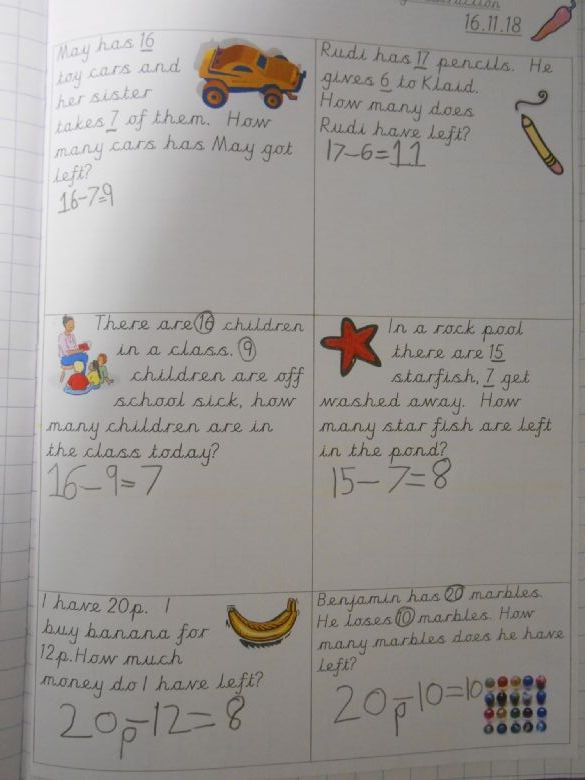 16.11.18
May has 16
toy cars and
her sister
takes 7 of them. How
many cars has May got
left?
16-7=9
Rudi has 17 pencils. He
gives 6 to Klaid.
How many does
Rudi have left?
17-6=11
There are 16 children
in a class. 9
children are off
school sick, how
many children are in
the class today?
16-9=7
In a rock pool
there are 15
starfish, 7 get
washed away. How
many star fish are left
in the pond?
15-7=8
I have 20p. I
buy banana for
12p. How much
money do I have left?
20p-12=8
Benjamin has 20 marbles.
He loses 10 marbles. How
many marbles does he have
left?
20p-10=10